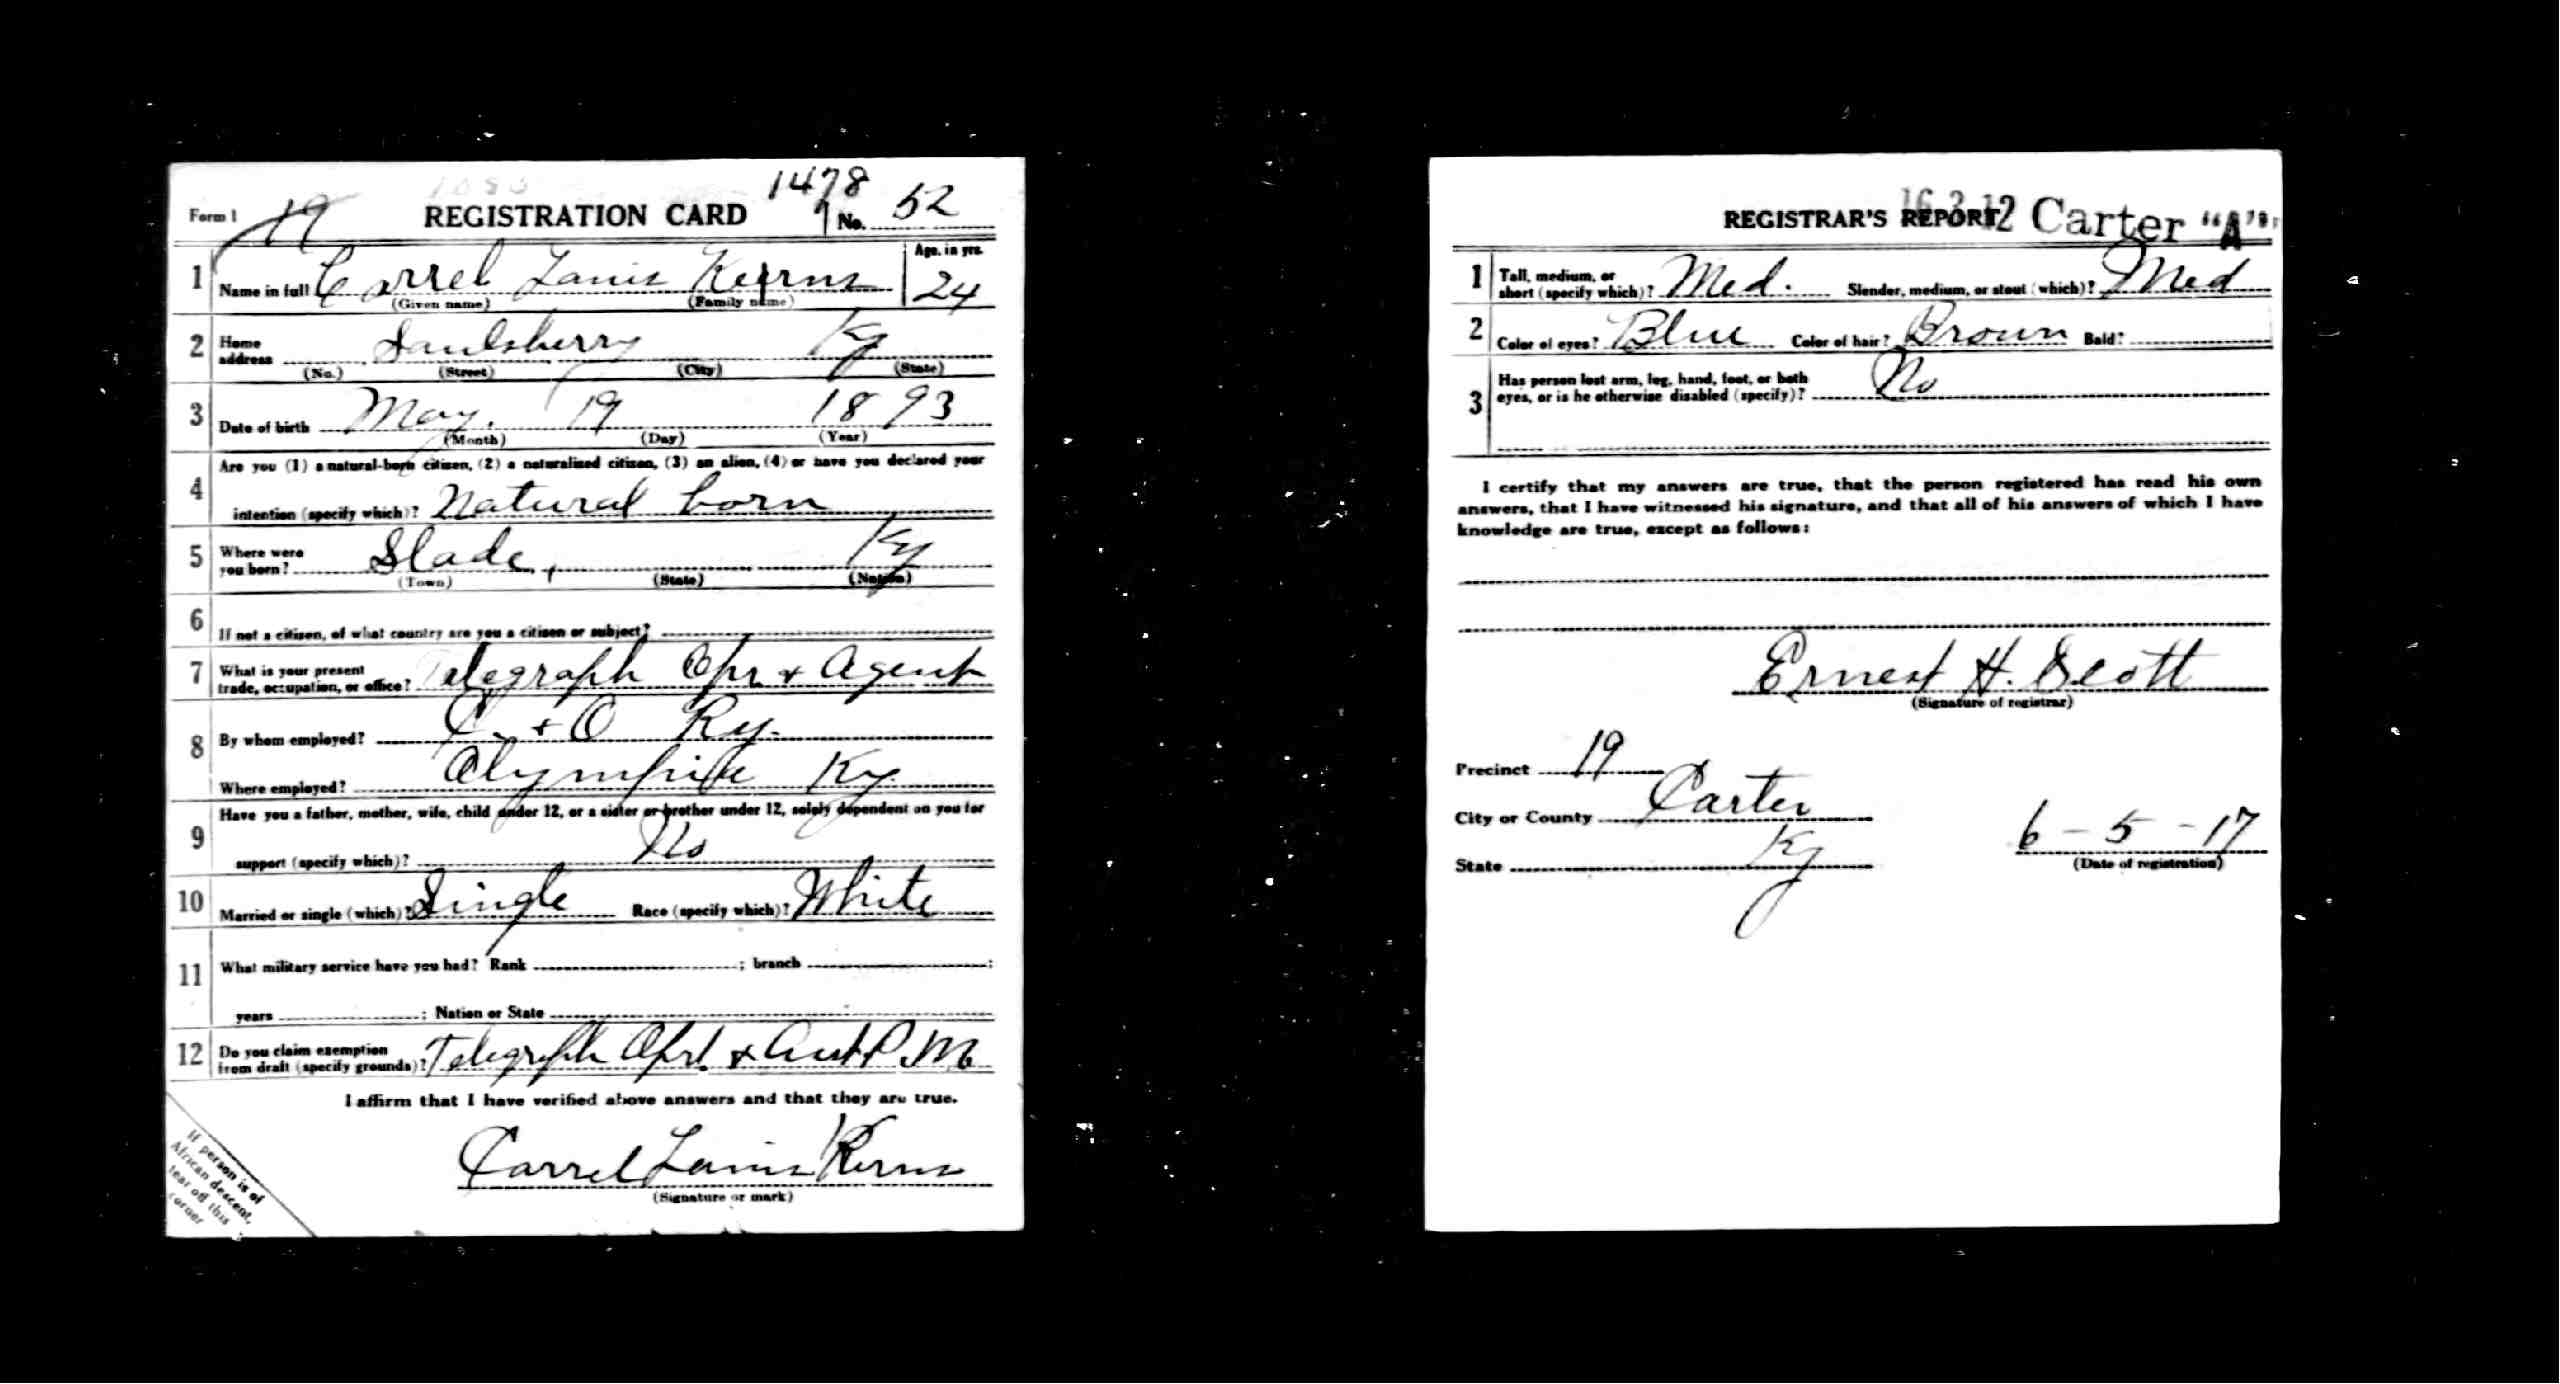 1478
Form 1 19 REGISTRATION CARD No. 52
1 Name in full Carrel Lanis Kerns Age, in yrs. 24
(Given name) (Family name)
2 Home address Saulsberry Ky
(No.) (Street) (City) (State)
3 Date of birth May. 19 1893
(Month) (Day) (Year)
Are you (1) a natural-born citizen, (2) a naturalized citizen, (3) an alien, (4) or have you declared your
4 intention (specify which)? Natural born
5 Where were you born? Slade, Ky
(Town) (State) (Nation)
6 If not a citizen, of what country are you a citizen or subject?
7 What is your present trade, occupation, or office? Telegraph Opr. + Agent
8 By whom employed? C. + O Ry.
Where employed? Ky.
Have you a father, mother, wife, child under 12, or a sister or brother under 12, solely dependent on you for
9 support (specify which)? No
10 Married or single (which)? Single Race (specify which)? White
11 What military service have you had? Rank ; branch ;
years ; Nation or State
12 Do you claim exemption from draft (specify grounds)? Telegraph Opr. + P.M.
I affirm that I have verified above answers and that they are true.
Carrel Lanis Kerns
(Signature or mark)
If person is of
African descent,
tear off this
corner
REGISTRAR'S REPORT Carter "A"
1 Tall, medium, or short (specify which)? Med. Slender, medium, or stout (which)? Med
2 Color of eyes? Blue Color of hair? Brown Bald?
3 Has person lost arm, leg, hand, foot, or both eyes, or is he otherwise disabled (specify)? No
I certify that my answers are true, that the person registered has read his own
answers, that I have witnessed his signature, and that all of his answers of which I have
knowledge are true, except as follows:
Ernest H. Scott
(Signature of registrar)
Precinct 19
City or County Carter
State Ky
6-5-17
(Date of registration)